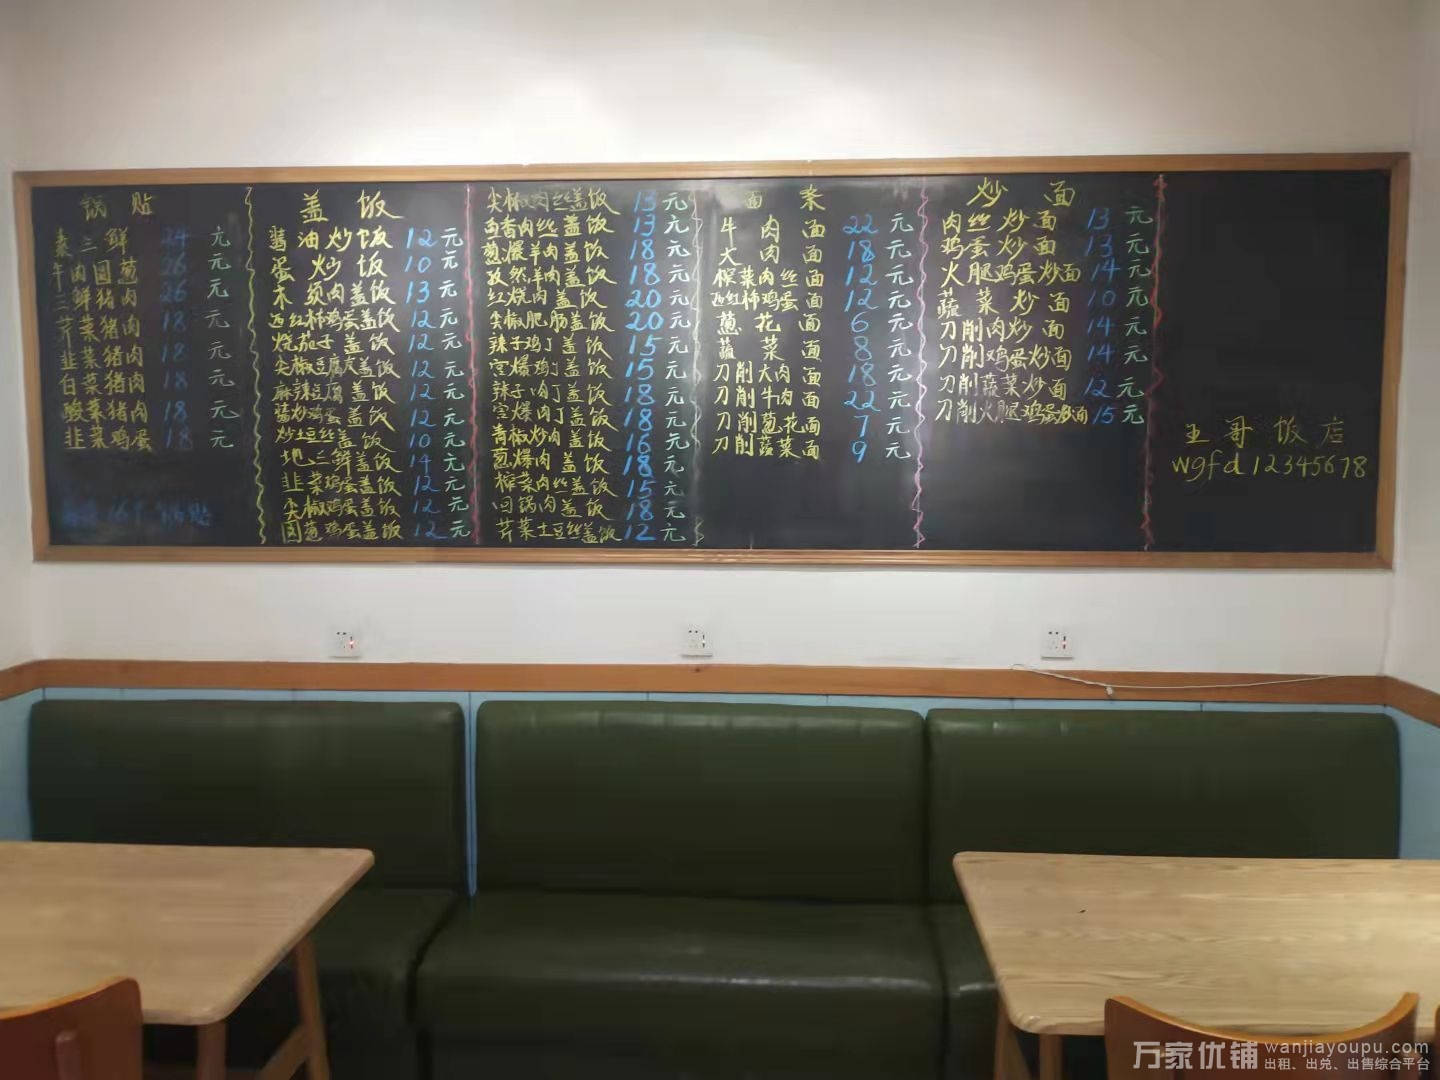 锅贴
素三鲜 24元
牛肉圆葱 26元
三鲜猪肉 26元
芹菜猪肉 18元
韭菜猪肉 18元
白菜猪肉 18元
酸菜猪肉 18元
韭菜鸡蛋 18元
盖饭
酱油炒饭 12元
蛋炒饭 10元
木须肉盖饭 13元
西红柿鸡蛋盖饭 12元
烧茄子盖饭 12元
尖椒豆腐皮盖饭 12元
麻辣豆腐盖饭 12元
酱炒鸡蛋盖饭 12元
炒土豆丝盖饭 10元
地三鲜盖饭 14元
韭菜鸡蛋盖饭 12元
尖椒鸡蛋盖饭 12元
圆葱鸡蛋盖饭 12元
尖椒肉丝盖饭 13元
鱼香肉丝盖饭 13元
葱爆羊肉盖饭 18元
孜然羊肉盖饭 18元
红烧肉盖饭 20元
尖椒肥肠盖饭 20元
辣子鸡丁盖饭 15元
宫爆鸡丁盖饭 15元
辣子肉丁盖饭 18元
宫爆肉丁盖饭 18元
青椒炒肉盖饭 16元
葱爆肉盖饭 18元
榨菜肉丝盖饭 15元
回锅肉盖饭 18元
芹菜土豆丝盖饭 12元
面条
牛肉面 22元
大肉面 18元
榨菜肉丝面 12元
西红柿鸡蛋面 12元
葱花面 6元
蔬菜面 8元
刀削大肉面 18元
刀削牛肉面 22元
刀削葱花面 7元
刀削蔬菜面 9元
炒面
肉丝炒面 13元
鸡蛋炒面 13元
火腿鸡蛋炒面 14元
蔬菜炒面 10元
刀削肉炒面 14元
刀削鸡蛋炒面 14元
刀削蔬菜炒面 12元
刀削火腿鸡蛋炒面 15元
王哥饭店
wgfd12345678
万家优铺 wanjiayoupu.com
出租、出兑、出售综合平台